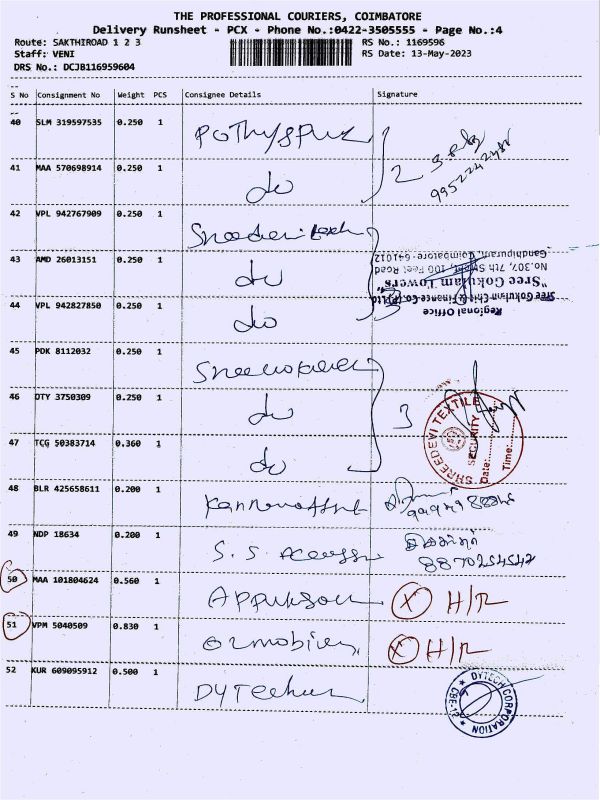 THE PROFESSIONAL COURIERS, COIMBATORE
Delivery Runsheet - PCX - Phone No.:0422-3505555 - Page No.:4
Route: SAKTHIROAD 1 2 3 RS No.: 1169596
Staff: VENI RS Date: 13-May-2023
DRS No.: DCJB116959604
S No Consignment No Weight PCS Consignee Details Signature
40 SLM 319597535 0.250 1 Pothyspur
41 MAA 570698914 0.250 1 do 2
42 VPL 942767909 0.250 1
43 AMD 26013151 0.250 1 do
44 VPL 942827850 0.250 1 do 3
Regional Office
Sree Gokulam Chit & Finance Co.(P)Ltd
"Sree Gokulam Towers"
No.307, 7th Street, 100 Feet Road
Gandhipuram, Coimbatore - 641012
45 PDK 8112032 0.250 1
46 OTY 3750309 0.250 1 do 3
47 TCG 50383714 0.360 1 do
SHREEDEVI TEXTILE
SECURITY
Date:
Time:
48 BLR 425658611 0.200 1
49 NDP 18634 0.200 1 S. S.
8870254542
50 MAA 101804624 0.560 1 X H/R
51 VPM 5040509 0.830 1 X H/R
52 KUR 609095912 0.500 1
DYTECH CORPORATION
CBE-12